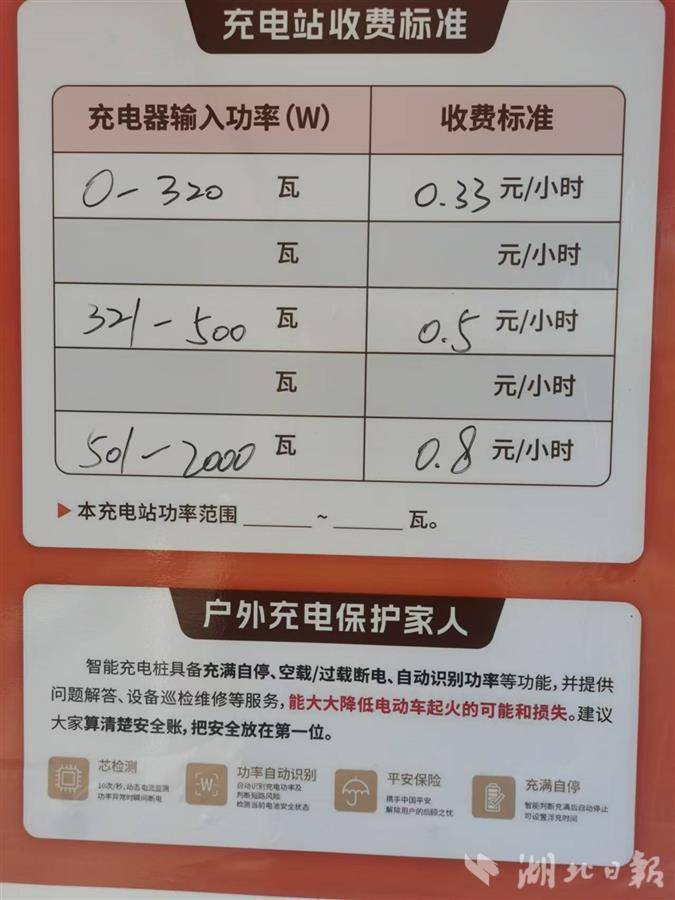 充电站收费标准
充电器输入功率(W) 收费标准
0-320 瓦 0.33 元/小时
瓦 元/小时
321-500 瓦 0.5 元/小时
瓦 元/小时
501-2000 瓦 0.8 元/小时
▶本充电站功率范围______~______瓦。
户外充电保护家人
智能充电桩具备充满自停、空载/过载断电、自动识别功率等功能,并提供
问题解答、设备巡检维修等服务,能大大降低电动车起火的可能和损失。建议
大家算清楚安全账,把安全放在第一位。
芯检测
10次/秒,动态电流监测
功率异常时瞬间断电
W
功率自动识别
自动识别充电功率及
判断短路风险
检测当前电池安全状态
平安保险
携手中国平安
解除用户的后顾之忧
充满自停
智能判断充满后自动停止
可设置浮充时间
湖北日报